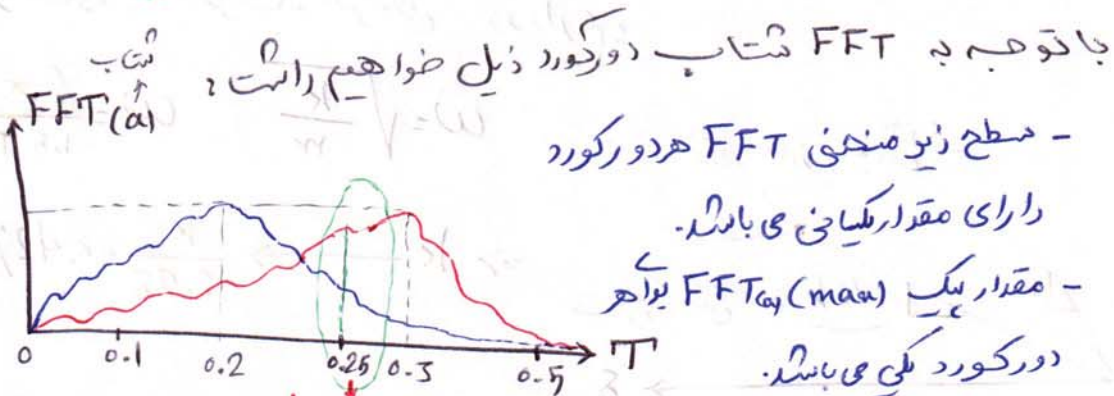 با توجه به FFT شتاب دو رکورد ذیل خواهیم داشت:
شتاب
FFT(a)
- سطح زیر منحنی FFT هر دو رکورد
دارای مقدار یکسانی می باشد.
- مقدار پیک FFT(a) (max) برای هر
دو رکورد یکی می باشد.
0 0.1 0.2 0.25 0.3 0.5 T